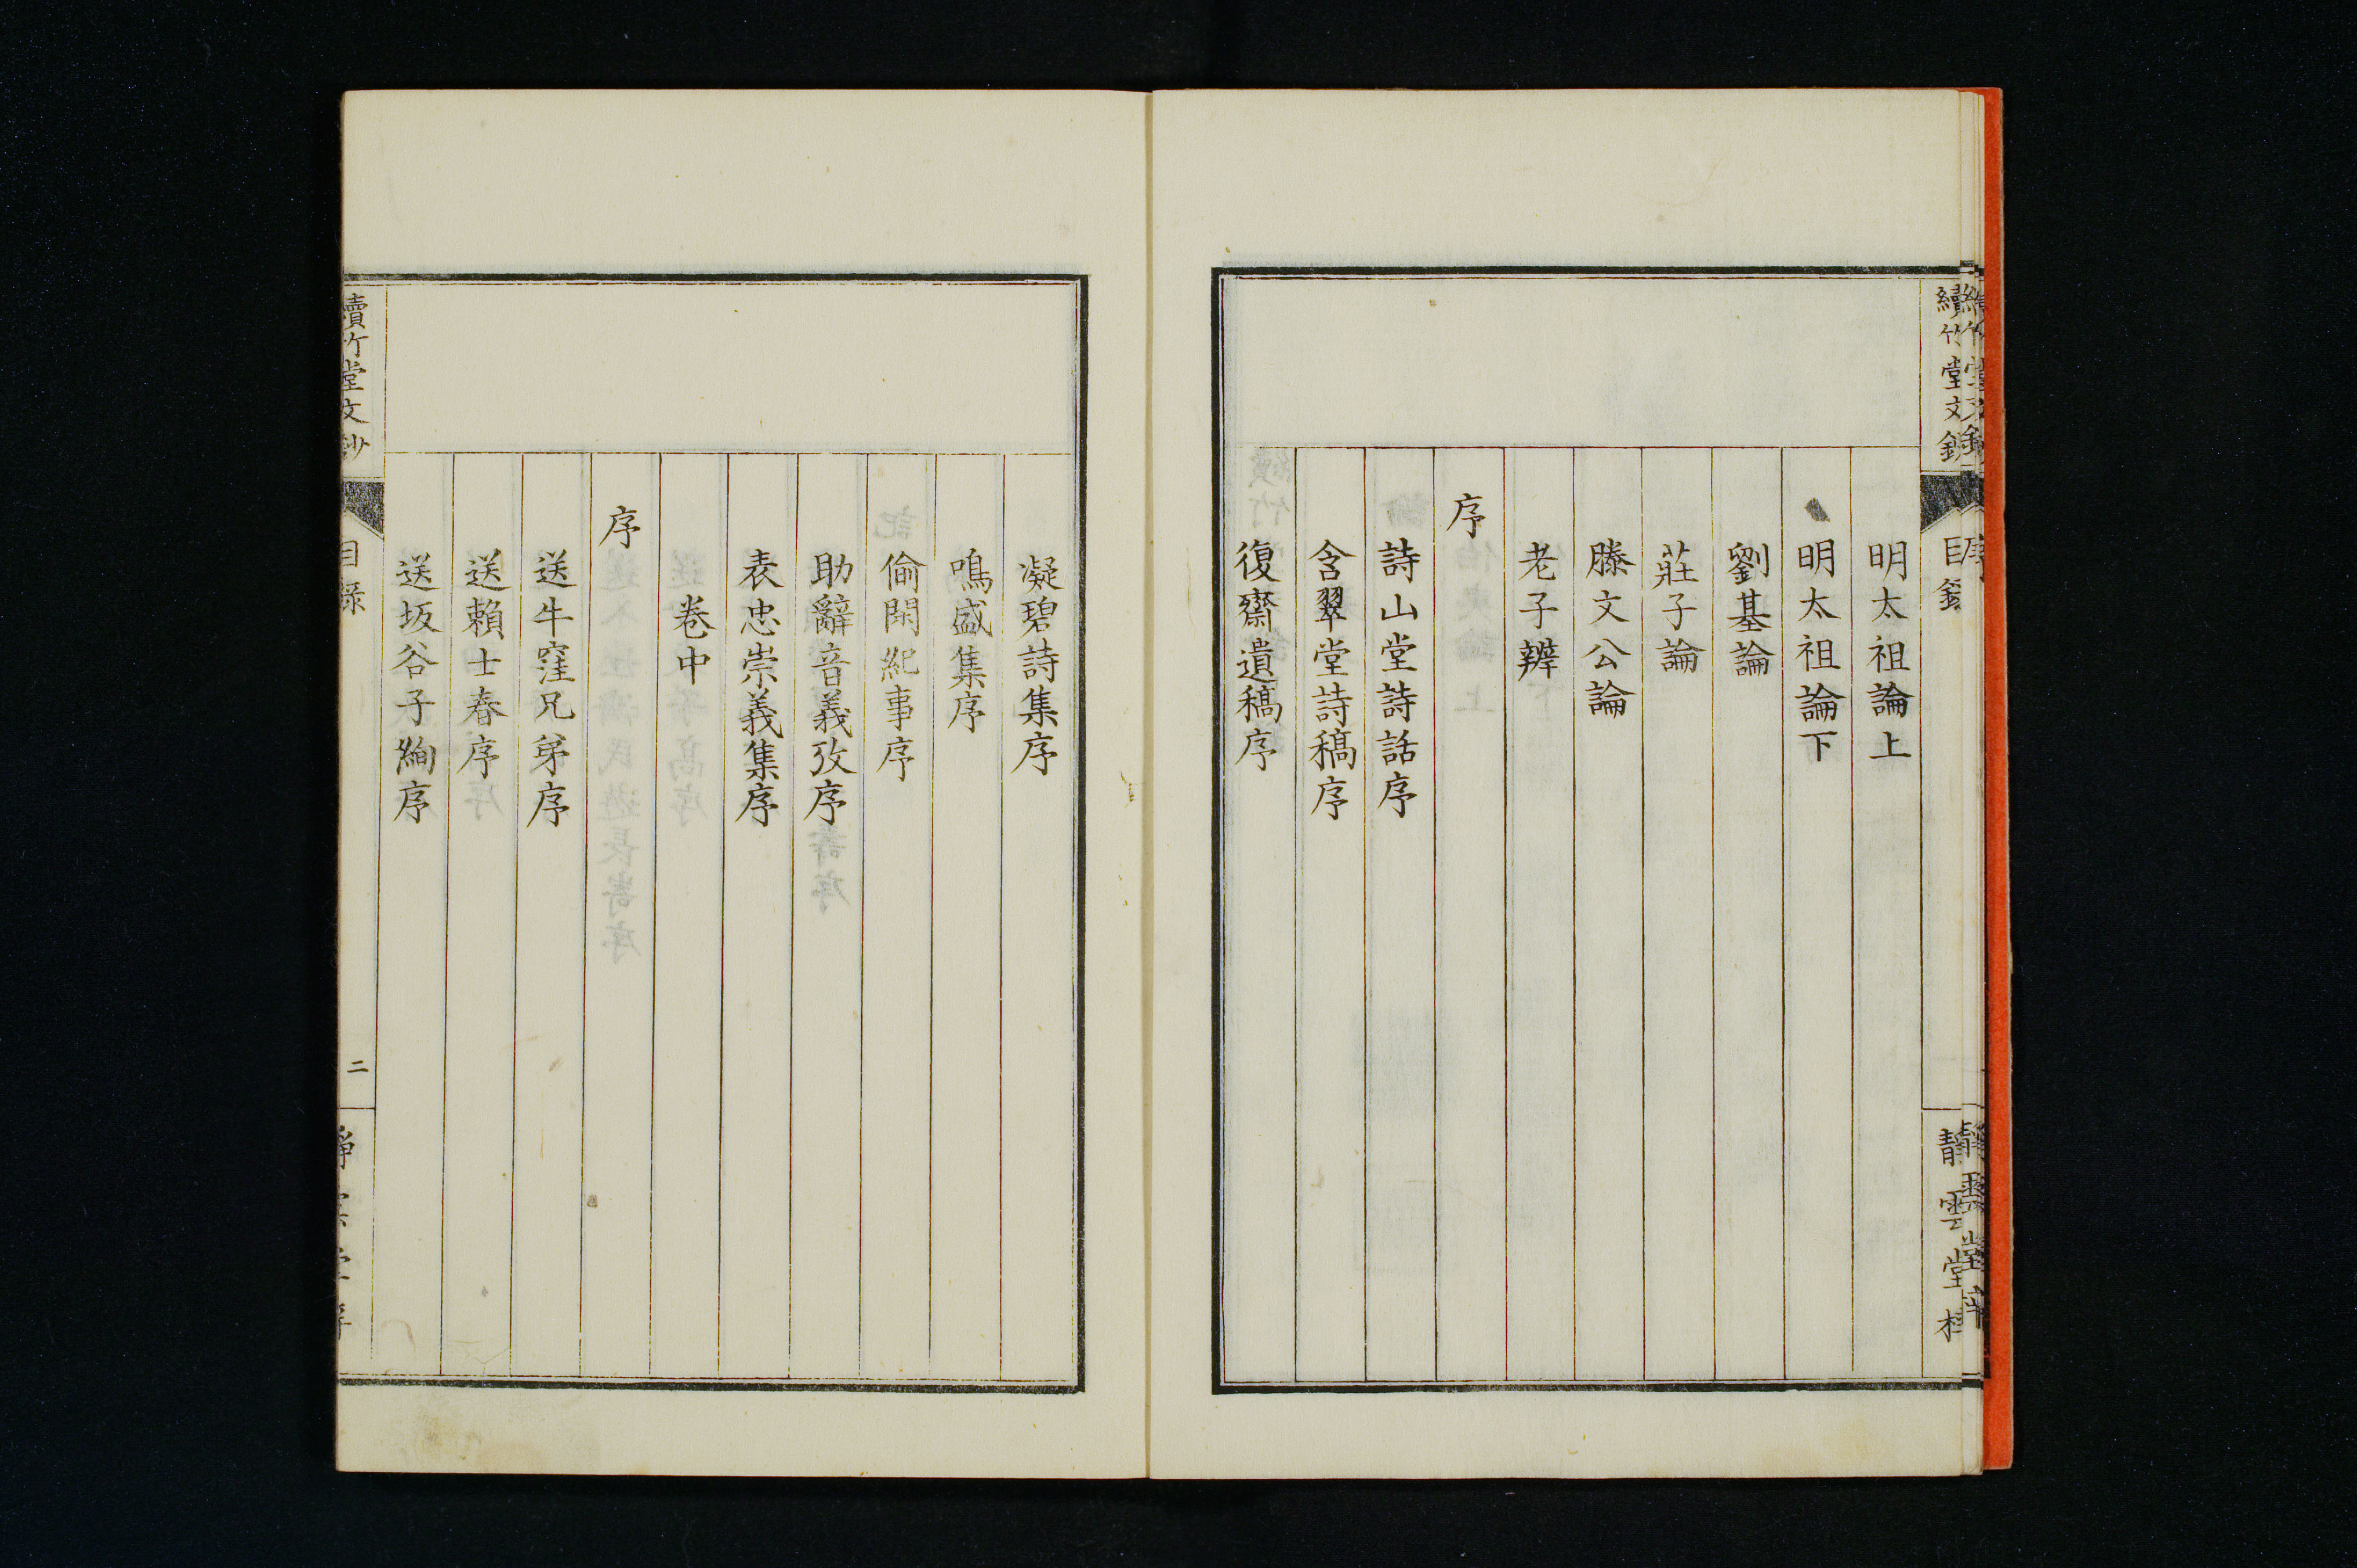 明太祖論上
明太祖論下
劉基論
莊子論
滕文公論
老子辨
序
詩山堂詩話序
含翠堂詩稿序
復齋遺稿序
凝碧詩集序
鳴盛集序
偷閑紀事序
助辭音義攷序
表忠崇義集序
卷中
序
送牛窪兄弟序
送賴士春序
送坂谷子絢序
續竹堂文鈔
目錄
二